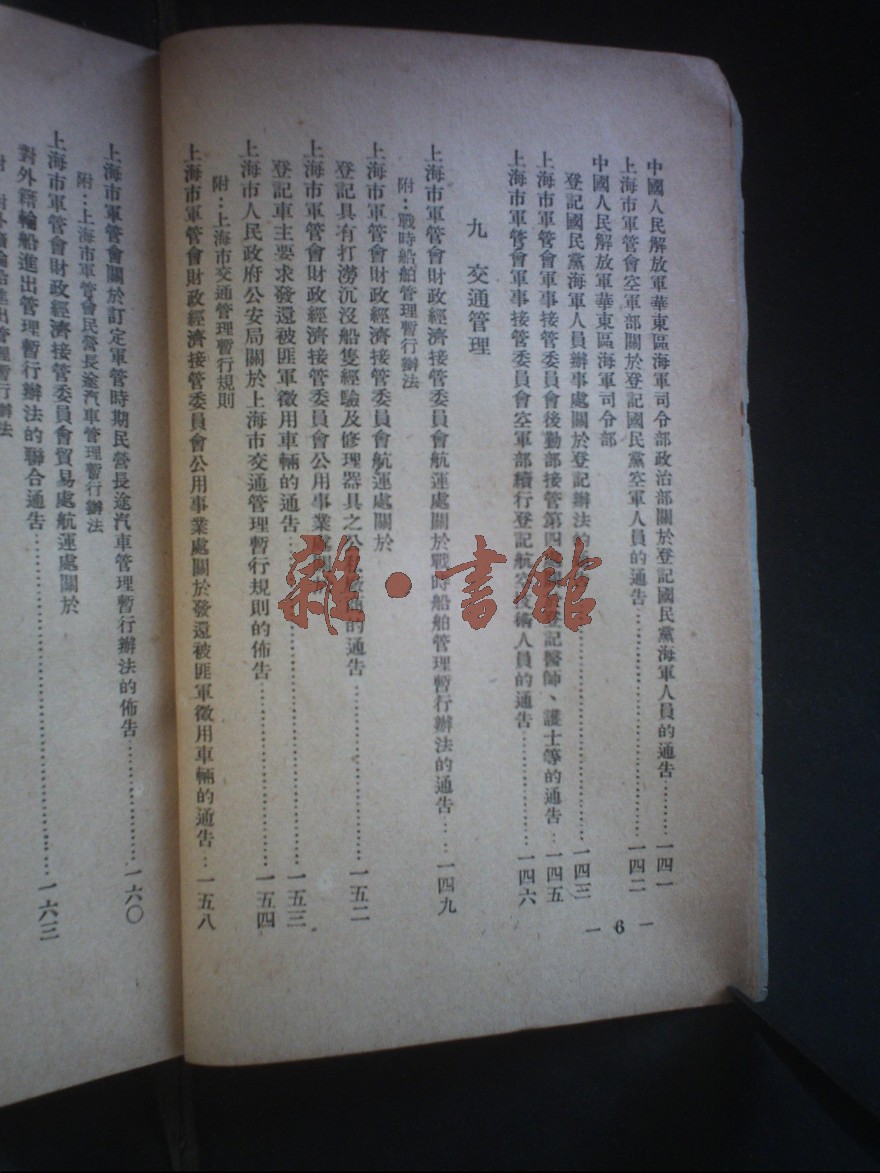 中國人民解放軍華東區海軍司令部政治部關於登記國民黨海軍人員的通告…………一四一
上海市軍管會空軍部關於登記國民黨空軍人員的通告…………一四二
中國人民解放軍華東區海軍司令部
登記國民黨海軍人員辦事處關於登記辦法的…………一四三
上海市軍管會軍事接管委員會後勤部接管第四 登記醫師、護士等的通告…一四五
上海市軍管會軍事接管委員會空軍部續行登記航空技術人員的通告…………一四六
九 交通管理
上海市軍管會財政經濟接管委員會航運處關於戰時船舶管理暫行辦法的通告……一四九
附：戰時船舶管理暫行辦法
上海市軍管會財政經濟接管委員會航運處關於
登記具有打撈沉沒船隻經驗及修理器具之公 的通告…………一五二
上海市軍管會財政經濟接管委員會公用事業處
登記車主要求發還被匪軍徵用車輛的通告…………一五三
上海市人民政府公安局關於上海市交通管理暫行規則的佈告…………一五四
附：上海市交通管理暫行規則
上海市軍管會財政經濟接管委員會公用事業處關於發還被匪軍徵用車輛的通告…一五八
— 6 —
上海市軍管會關於訂定軍管時期民營長途汽車管理暫行辦法的佈告…………一六〇
附：上海市軍管會民營長途汽車管理暫行辦法
上海市軍管會財政經濟接管委員會貿易處航運處關於
對外籍輪船進出管理暫行辦法的聯合通告…………一六三
附：對外籍輪船進出管理暫行辦法
雜·書館